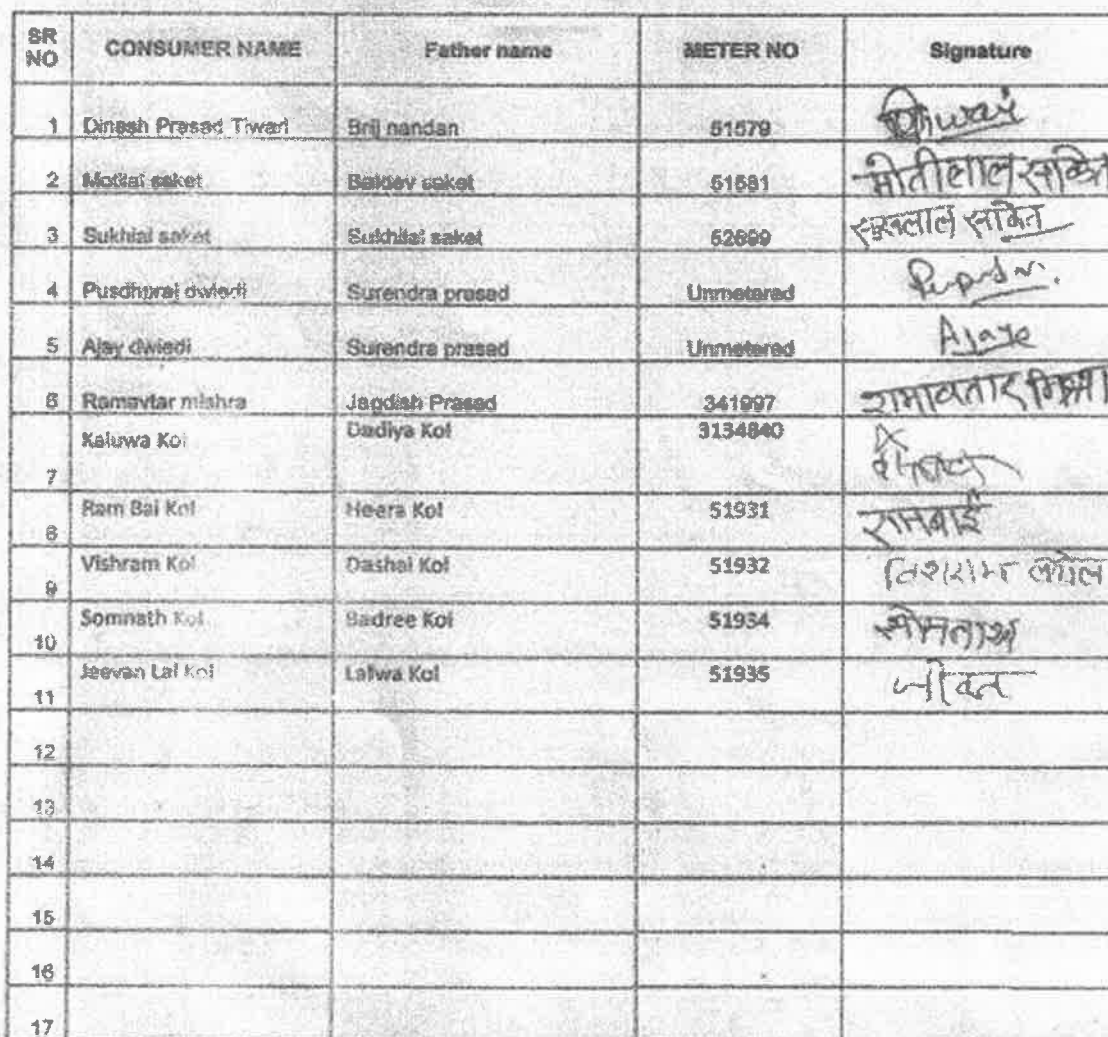 SR NO CONSUMER NAME Father name METER NO Signature
1 Dinesh Prasad Tiwari Brij nandan 51579
2 Motilal saket Baldev saket 51581 मोतीलाल साकेत
3 Sukhlal saket Sukhilal saket 52699 सुखलाल साकेत
4 Pusdhpraj dwiedi Surendra prasad Unmetered
5 Ajay dwiedi Surendra prasad Unmetered Ajaye
6 Ramavtar mishra Jagdish Prasad 341997 रामावतार मिश्रा
7 Kaluwa Kol Dadiya Kol 3134840
8 Ram Bai Kol Heera Kol 51931 रामबाई
9 Vishram Kol Dashai Kol 51932 विशराम
10 Somnath Kol Badree Kol 51934 सोमनाथ
11 Jeevan Lal Kol Lalwa Kol 51935 जीवन
12
13
14
15
16
17